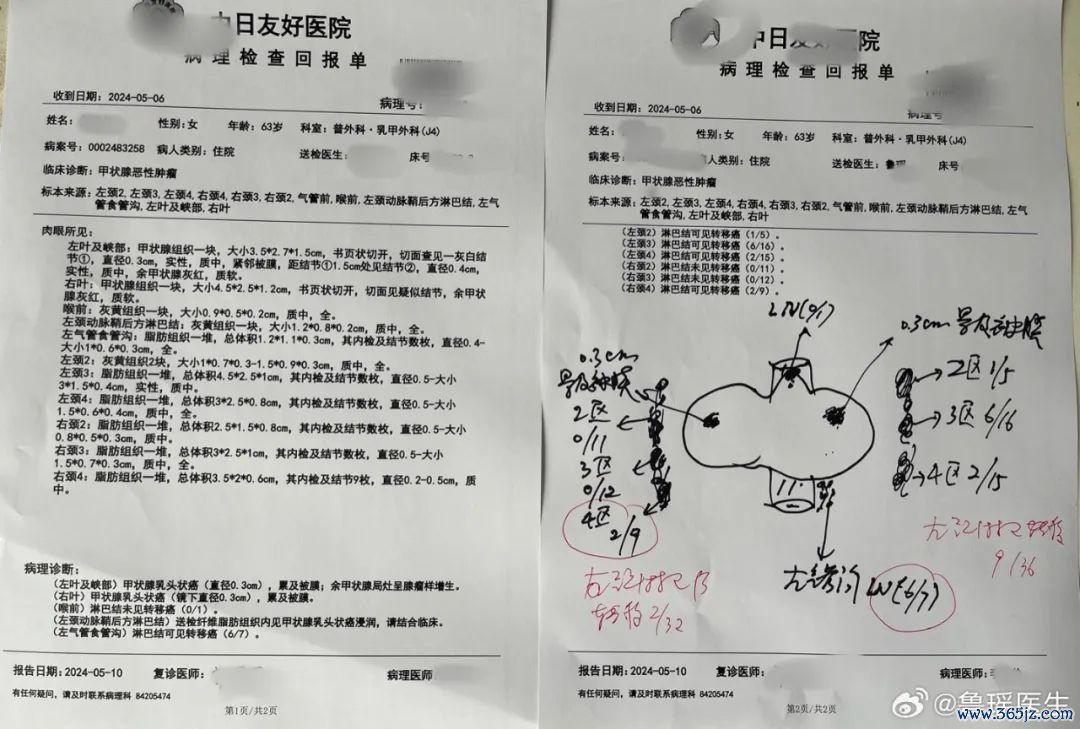 中日友好医院
病理检查回报单
收到日期：2024-05-06
病理号：
姓名：
性别：女 年龄：63岁 科室：普外科·乳甲外科(J4)
病案号：0002483258 病人类别：住院 送检医生： 床号
临床诊断：甲状腺恶性肿瘤
标本来源：左颈2,左颈3,左颈4,右颈4,右颈3,右颈2,气管前,喉前,左颈动脉鞘后方淋巴结,左气
管食管沟,左叶及峡部,右叶
肉眼所见：
左叶及峡部：甲状腺组织一块，大小3.5*2.7*1.5cm，书页状切开，切面查见一灰白结
节①，直径0.3cm，实性，质中，紧邻被膜，距结节①1.5cm处见结节②，直径0.4cm，
实性，质中，余甲状腺灰红，质软。
右叶：甲状腺组织一块，大小4.5*2.5*1.2cm，书页状切开，切面见疑似结节，余甲状
腺灰红，质软。
喉前：灰黄组织一块，大小0.9*0.5*0.2cm，质中，全。
左颈动脉鞘后方淋巴结：灰黄组织一块，大小1.2*0.8*0.2cm，质中，全。
左气管食管沟：脂肪组织一堆，总体积1.2*1.1*0.3cm，其内检及结节数枚，直径0.4-
大小1*0.6*0.3cm，全。
左颈2：灰黄组织2块，大小1*0.7*0.3-1.5*0.9*0.3cm，质中，全。
左颈3：脂肪组织一堆，总体积4.5*2.5*1cm，其内检及结节数枚，直径0.5-大小
3*1.5*0.4cm，实性，质中。
左颈4：脂肪组织一堆，总体积3*2.5*0.8cm，其内检及结节数枚，直径0.5-大小
1.5*0.6*0.4cm，质中，全。
右颈2：脂肪组织一堆，总体积2.5*1.5*0.8cm，其内检及结节数枚，直径0.5-大小
0.8*0.5*0.3cm，质中。
右颈3：脂肪组织一堆，总体积3*2.5*1cm，其内检及结节数枚，直径0.5-大小
1.5*0.7*0.3cm，质中，全。
右颈4：脂肪组织一堆，总体积3.5*2*0.6cm，其内检及结节9枚，直径0.2-0.5cm，质
中。
病理诊断：
（左叶及峡部）甲状腺乳头状癌（直径0.3cm），累及被膜；余甲状腺局灶呈腺瘤样增生。
（右叶）甲状腺乳头状癌（镜下直径0.3cm），累及被膜。
（喉前）淋巴结未见转移癌（0/1）。
（左颈动脉鞘后方淋巴结）送检纤维脂肪组织内见甲状腺乳头状癌浸润，请结合临床。
（左气管食管沟）淋巴结可见转移癌（6/7）。
报告日期：2024-05-10 复诊医师： 病理医师
有任何疑问，请及时联系病理科 84205474
第1页/共2页
中日友好医院
病理检查回报单
收到日期：2024-05-06
病理号
姓名：
性别：女 年龄：63岁 科室：普外科·乳甲外科(J4)
病案号： 病人类别：住院 送检医生：鲁 床号
临床诊断：甲状腺恶性肿瘤
标本来源：左颈2,左颈3,左颈4,右颈4,右颈3,右颈2,气管前,喉前,左颈动脉鞘后方淋巴结,左气
管食管沟,左叶及峡部,右叶
（左颈2）淋巴结可见转移癌（1/5）。
（左颈3）淋巴结可见转移癌（6/16）。
（左颈4）淋巴结可见转移癌（2/15）。
（右颈2）淋巴结未见转移癌（0/11）。
（右颈3）淋巴结未见转移癌（0/12）。
（右颈4）淋巴结可见转移癌（2/9）。
LN(0/1)
0.3cm
0.3cm
2区 1/5
2区
0/11
3区 6/16
3区
0/12
4区 2/15
4区
2/9
9/36
LN(6/7)
转移2/32
报告日期：2024-05-10 复诊医师： 病理医师：
有任何疑问，请及时联系病理科 84205474
第2页/共2页
@鲁瑶医生
www.365jz.com